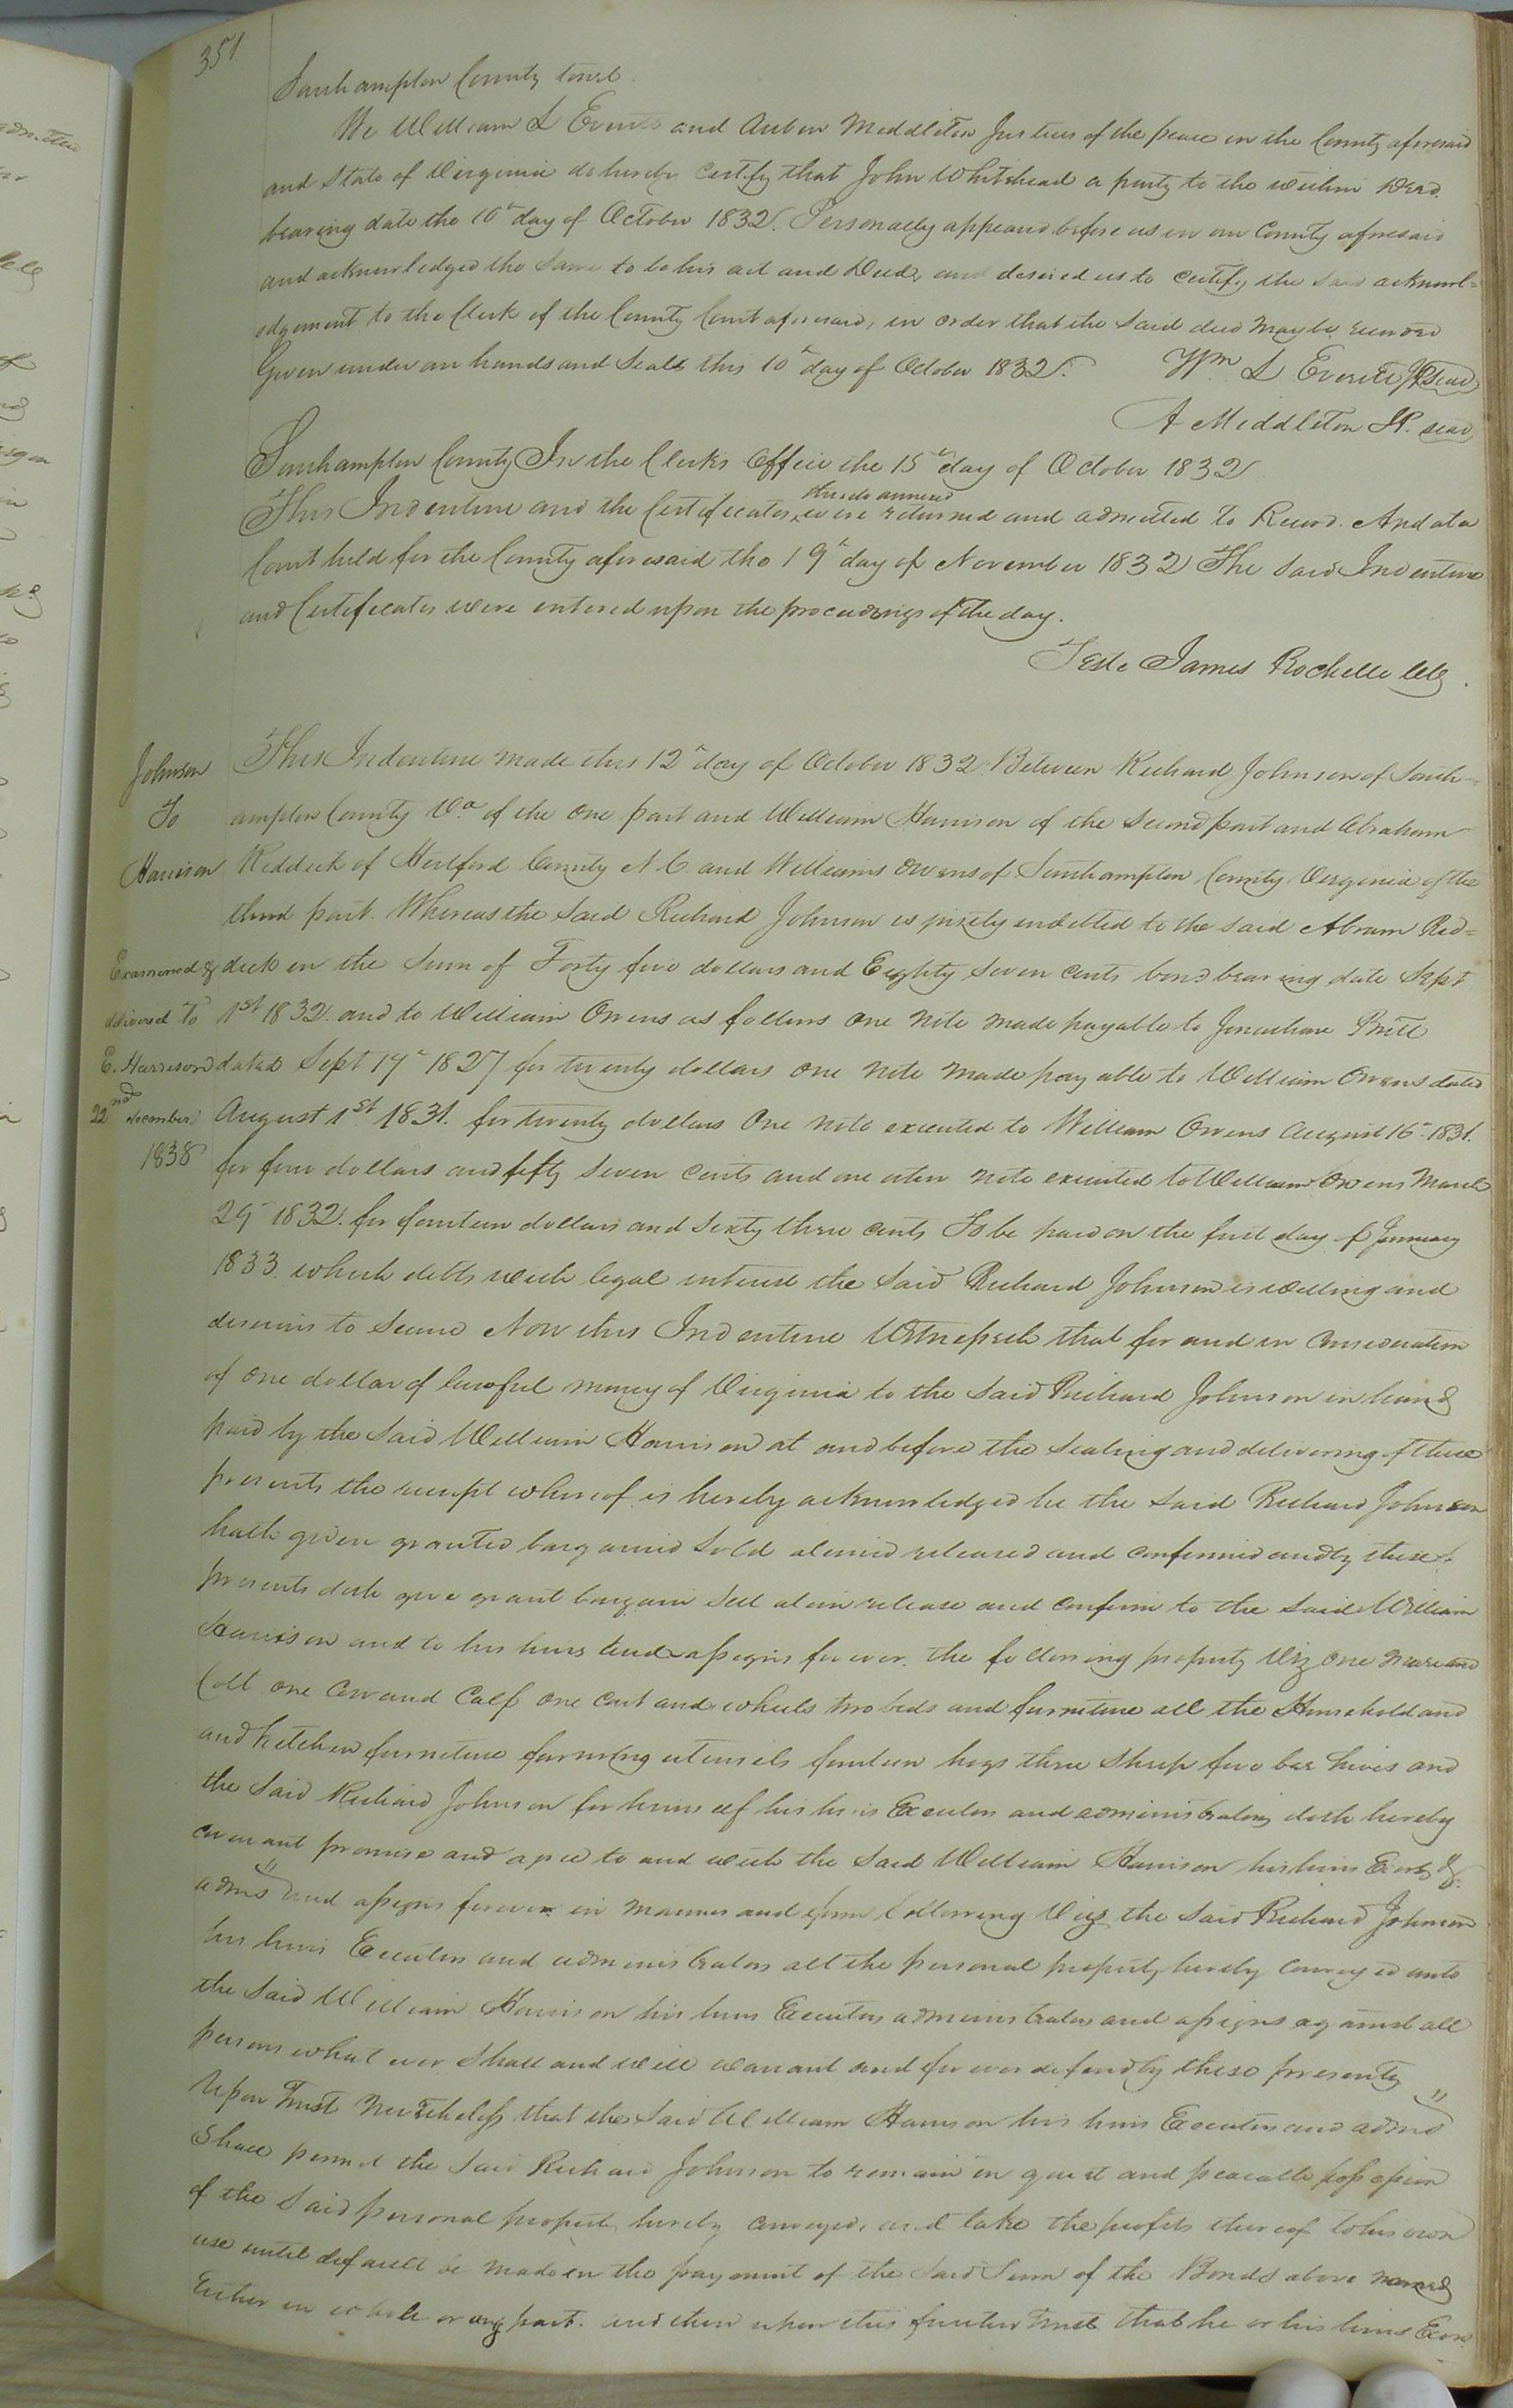 351
Southampton County towit.
We William L Everitt and Auben Middleton Justices of the peace in the County aforesaid
and State of Virginia do hereby certify that John Whitehead a party to the within Deed
bearing date the 10th day of October 1832. Personally appeared before us in our County aforesaid
and acknowledged the same to be his act and Deed, and desired us to certify the said acknowl=
edgement to the Clerk of the County Court aforesaid, in order that the said deed may be recorded
Given under our hands and Seals this 10th day of October 1832.
Wm L Everitt JP seal
A Middleton JP. seal
Southampton County In the Clerks Office the 15th day of October 1832
thereto annexed
This Indenture and the Certificates were returned and admitted to Record. And at a
Court held for the County aforesaid the 19th day of November 1832 The said Indenture
and Certificates were entered upon the proceedings of the day.
Teste James Rochelle Clk.
Johnson
To
Harrison
This Indenture made this 12th day of October 1832 Between Richard Johnson of South=
ampton County Va of the one part and William Harrison of the second part and Abraham
Reddick of Hertford County N C and Williams Owens of Southampton County Virginia of the
third part. Whereas the said Richard Johnson is justly indebted to the said Abram Red=
Examined &
delivered to
E. Harrison
22nd december
1838
dick in the sum of Forty five dollars and Eighty seven cents bond bearing date Sept
1st 1832. and to William Owens as follows one note made payable to Jonathan Britt
dated Sept 17th 1827 for twenty dollars one note made payable to William Owens dated
August 1st 1831. for twenty dollars One note executed to William Owens August 16th 1831.
for four dollars and fifty seven cents and one other note executed to William Owens March
29th 1832. for fourteen dollars and sixty three cents To be paid on the first day of January
1833 which debts with legal interest the said Richard Johnson is willing and
desirous to secure Now this Indenture Witnesseth that for and in consideration
of one dollar of lawful money of Virginia to the said Richard Johnson in hand
paid by the said William Harrison at and before the sealing and delivering of these
presents the receipt whereof is hereby acknowledged he the said Richard Johnson
hath given granted bargained sold aliened released and confirmed and by these
presents doth give grant bargain sell alien release and confirm to the said William
Harrison and to his heirs and assigns forever. the following property Viz one mare and
Colt one Cow and Calf one cart and wheels two beds and furniture all the Household and
and kitchen furniture farming utensils fourteen hogs three Sheep five bee hives and
the said Richard Johnson for himself his heirs Executors and administrators doth hereby
covenant promise and agree to and with the said William Harrison his heirs Exors &
adms and assigns forever in manner and form following Viz, the said Richard Johnson
his heirs Executors and administrators all the personal property hereby conveyed unto
the said William Harrison his heirs Executors administrators and assigns against all
persons what ever shall and will warrant and forever defend by these presents
Upon Trust Nevertheless that the said William Harrison his heirs Executors and adms
Shall permit the said Richard Johnson to remain in quiet and peaceable possession
of the said personal property hereby conveyed, and take the profits thereof to his own
use until default be made in the payment of the said Sum of the Bonds above named
Either in whole or any part. and then upon this further Trust that he or his heirs Exors